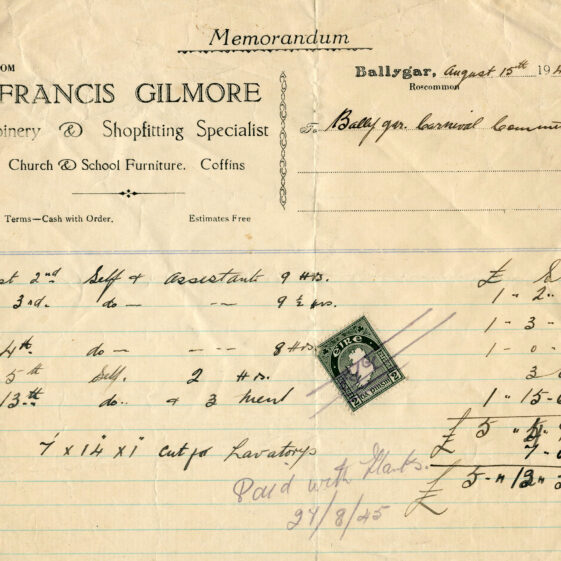 Memorandum
OM
FRANCIS GILMORE
oinery & Shopfitting Specialist
Church & School Furniture. Coffins
Terms—Cash with Order. Estimates Free
Ballygar, August 15th 194
Roscommon
To Ballygar Carnival Commi
st 2nd Self & assistant 9 Hrs. £ S
1 " 2 "
3rd. do — -- 9½ hrs.
1 - 3 -
4th. do — --- 8 Hrs
1 - 0 -
5th Self. 2 Hrs. 3
13th do.. & 3 men 1 " 15 -
£ 5
7' x 14" x 1" cut for Lavatory 7 -
£ 5 - " 12 "
Paid with thanks.
27/8/45
EIRE
2
2